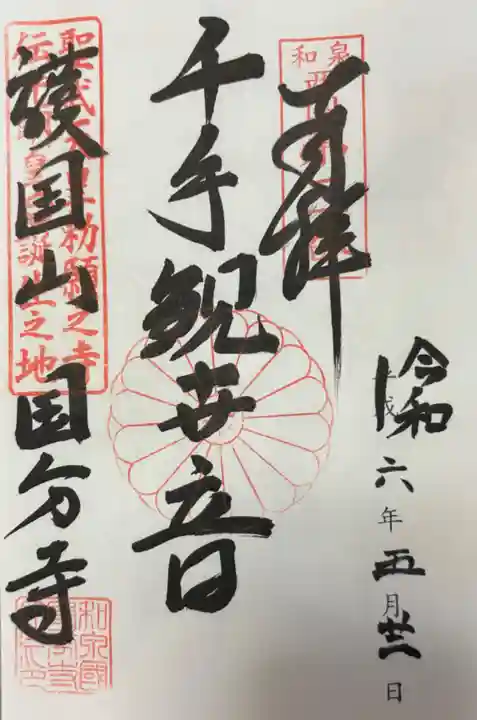 奉拝
令和六年五月廿一日
千手観世音
護国山 国分寺
聖武天皇勅願之寺
誕生之地
和泉
和泉國